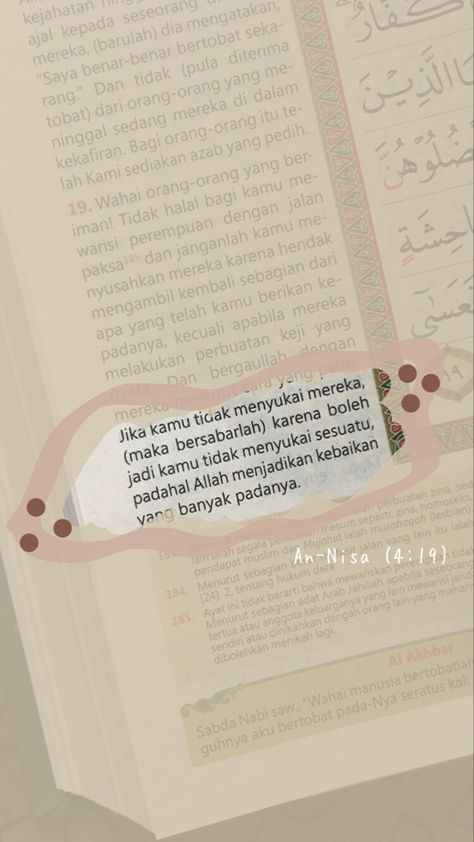 kejahatan
ajal kepada seseorang di
mereka, (barulah) dia mengatakan,
"Saya benar-benar bertobat seka-
rang." Dan tidak (pula diterima
tobat) dari orang-orang yang me-
ninggal sedang mereka di dalam
kekafiran. Bagi orang-orang itu te-
lah Kami sediakan azab yang pedih.
19. Wahai orang-orang yang ber-
iman! Tidak halal bagi kamu me-
warisi perempuan dengan jalan
paksa185 dan janganlah kamu me-
nyusahkan mereka karena hendak
mengambil kembali sebagian dari
apa yang telah kamu berikan ke-
padanya, kecuali apabila mereka
melakukan perbuatan keji yang
nyata. Dan bergaullah dengan
mereka menurut cara yang patut.
Jika kamu tidak menyukai mereka,
(maka bersabarlah) karena boleh
jadi kamu tidak menyukai sesuatu,
padahal Allah menjadikan kebaikan
yang banyak padanya.
perbuatan zina, sed
ialah segala perbuatan mesum seperti: zina, homoseks
pendapat muslim dan Mujahid ialah musahaqah (lesbian)
An-Nisa (4:19)
184. Menurut sebagian jalan yang lain itu ialah
[24]: 2, tentang hukum dera.
185. Ayat ini tidak berarti bahwa mewariskan perempuan tidak
Menurut sebagian adat Arab Jahiliah apabila seorang
tertua atau anggota keluarganya yang lain mewarisi janda
sendiri atau dinikahkan dengan orang lain yang mahar
dibolehkan menikah lagi.
Al Akhbar
Sabda Nabi saw., "Wahai manusia bertobatlah
guhnya aku bertobat pada-Nya seratus kali
كُفَّارٌ
الَّذِيْنَ